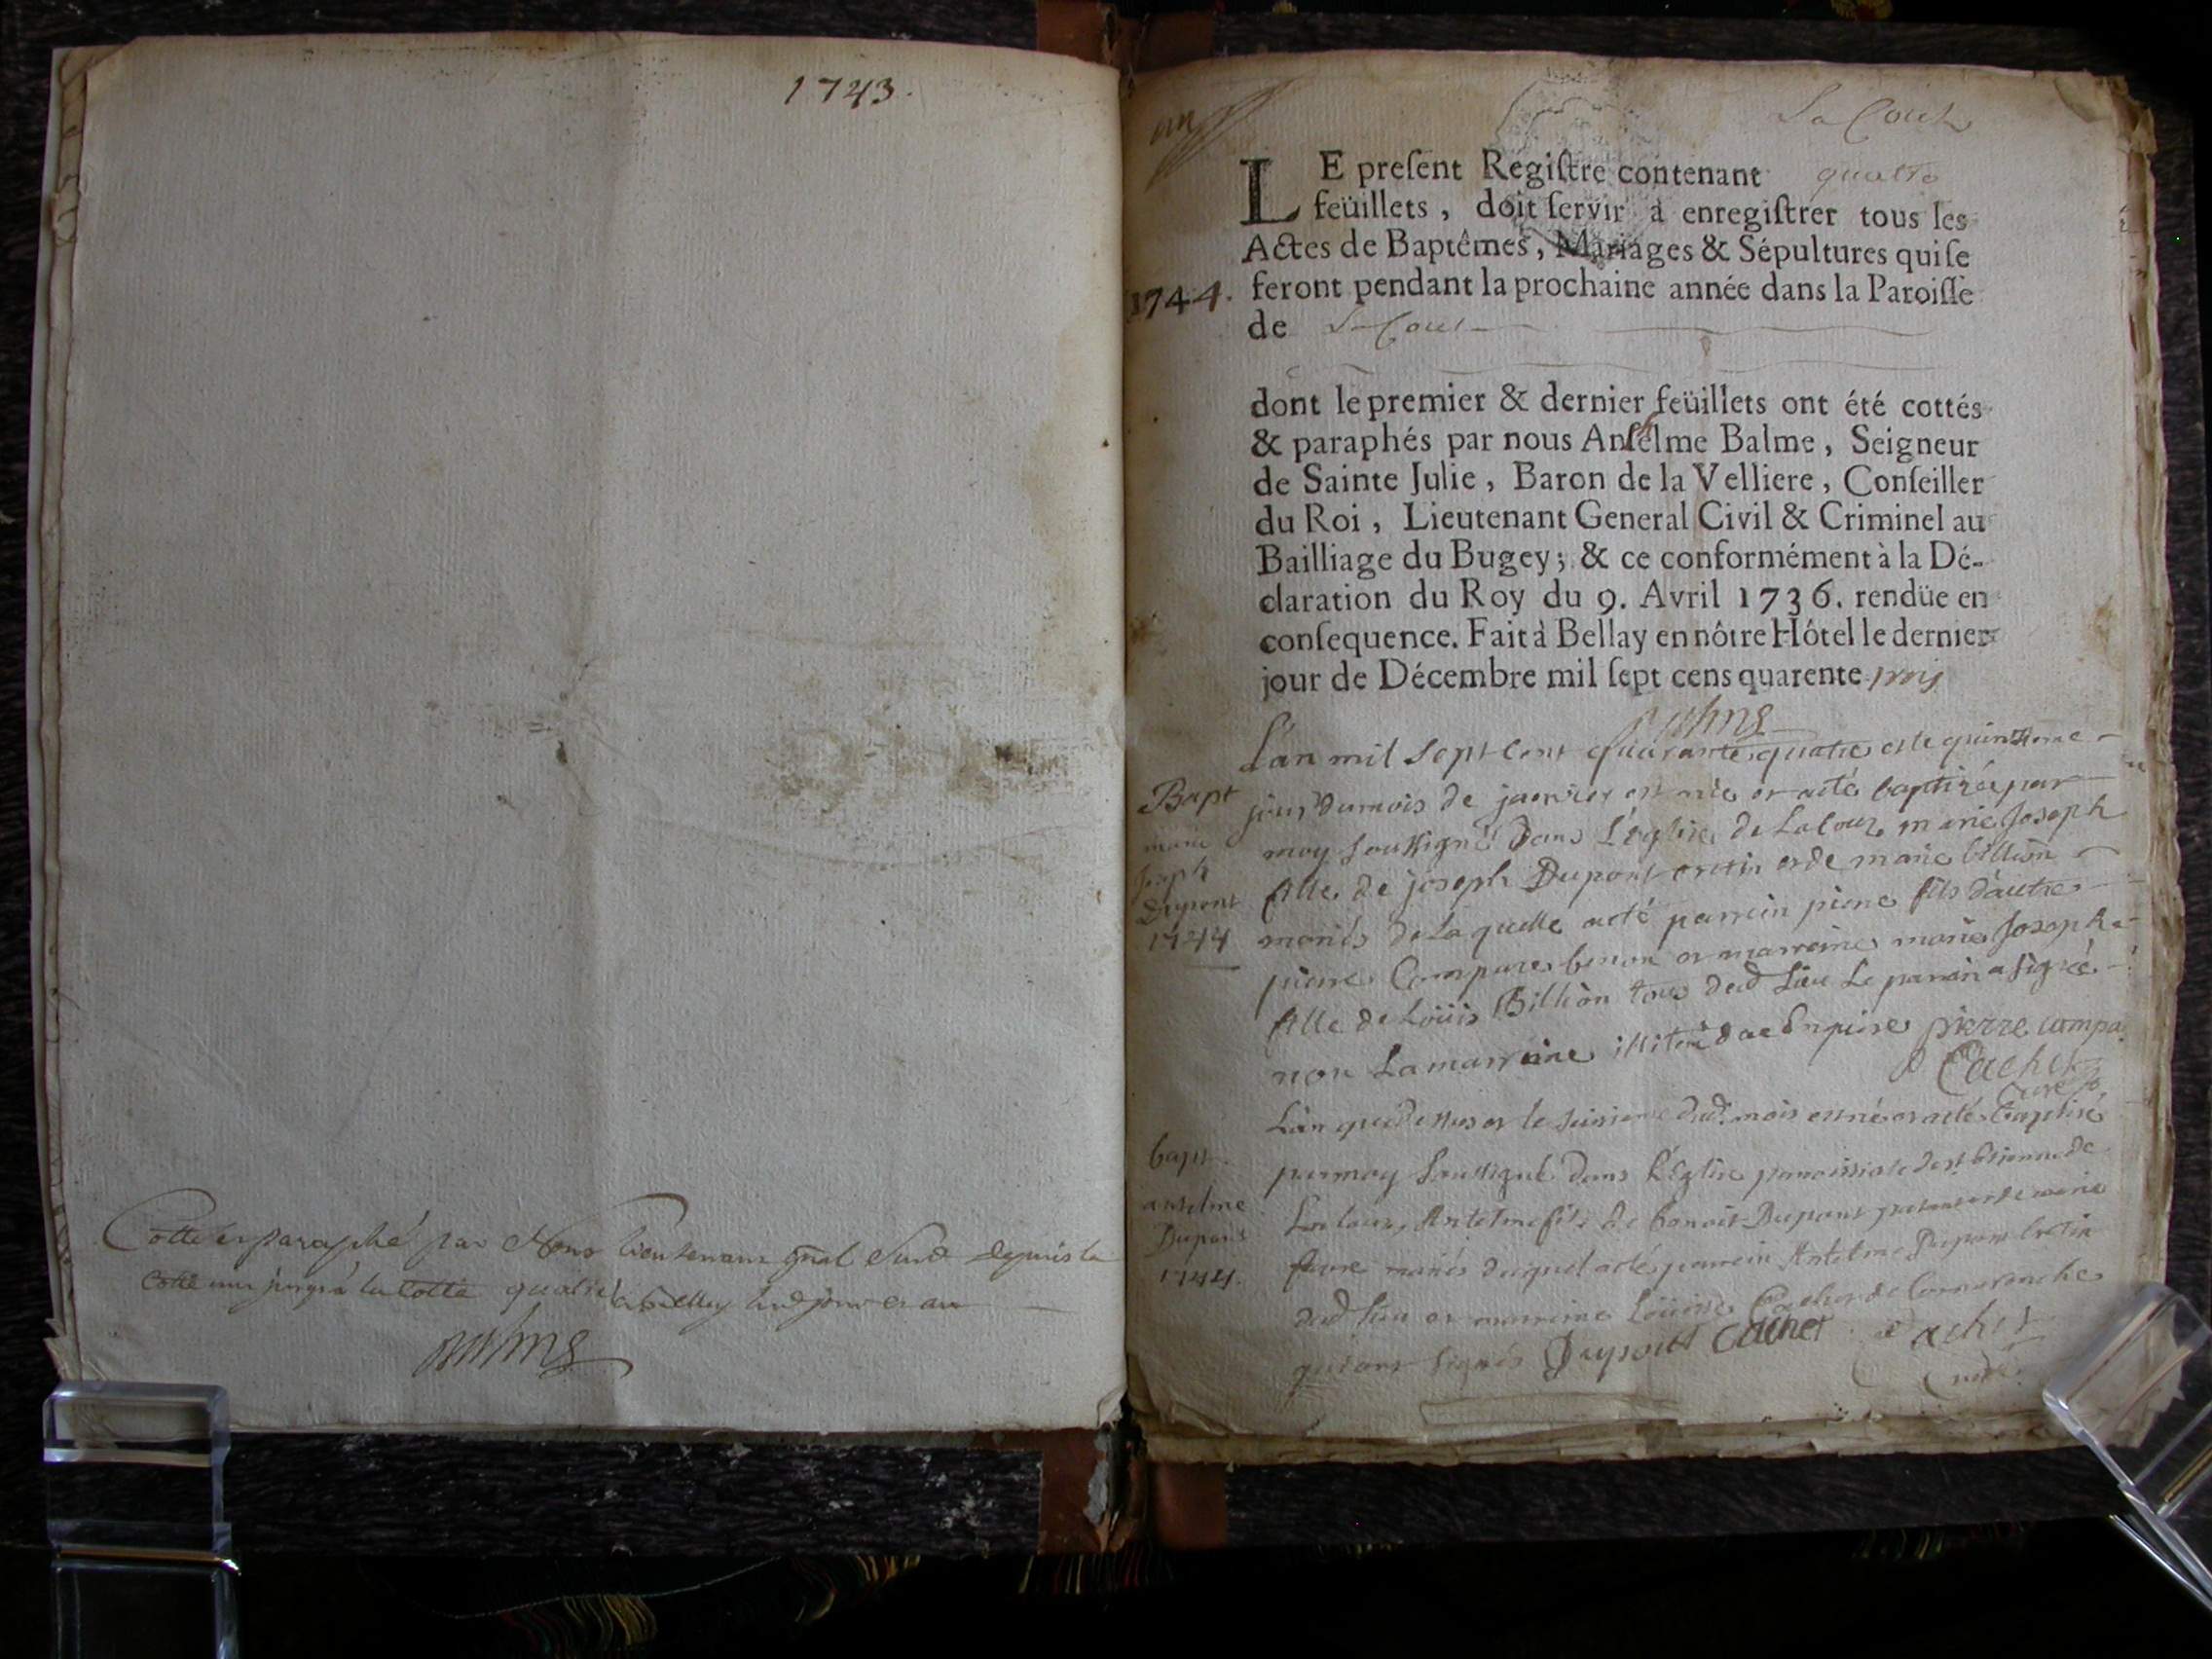 1743.
Cotté et paraphé par Nous Lieutenant gnal Susd depuis la
Cotte une jusqu'à la Cotte quatre à Belley led jour et an
Balme
un
La Coux
LE preſent Régiſtre contenant quatre
feüillets, doit ſervir à enregiſtrer tous les
Actes de Baptêmes, Mariages & Sépultures qui ſe
1744. feront pendant la prochaine année dans la Paroiſſe
de La Coux
dont le premier & dernier feüillets ont été cottés
& paraphés par nous Anthelme Balme, Seigneur
de Sainte Julie, Baron de la Velliere, Conſeiller
du Roi, Lieutenant General Civil & Criminel au
Bailliage du Bugey; & ce conformément à la Dé-
claration du Roy du 9. Avril 1736. rendüe en
conſequence. Fait à Bellay en nôtre Hôtel le dernier
jour de Décembre mil ſept cens quarente trois
Balme
L'an mil sept cent quarante quatre et le quinzieme
Bapt
marie
Joseph
Dupont
1744
jour du mois de janvier est née et a été baptizée par
moy soussigné dans L'église de Lacoux marie Joseph
fille de joseph Dupont et de marie billion
mariés de Laquelle a eté parrein pierre fils d'autre
pierre Compare et marreine marie Joseph
fille de Loüis Billion tous dud Lieu Le parrain a signé
non La marreine illiterée de ce Enquise pierre compa
Cachet
Curé
L'an que dessus et le dud. mois est né et a eté Baptisé
bapt
anselme
Dupont
1744.
par moy soussigné dans L'Eglise parroissiale de st Etienne de
Lacoux, Antelme fils de benoit Dupont et de marie
mariés duquel a eté parrein Antelme Dupont
dud Lieu et marreine Loüise Cachet de Cormaranche
qui ont signés Dupont Cachet Cachet
curé